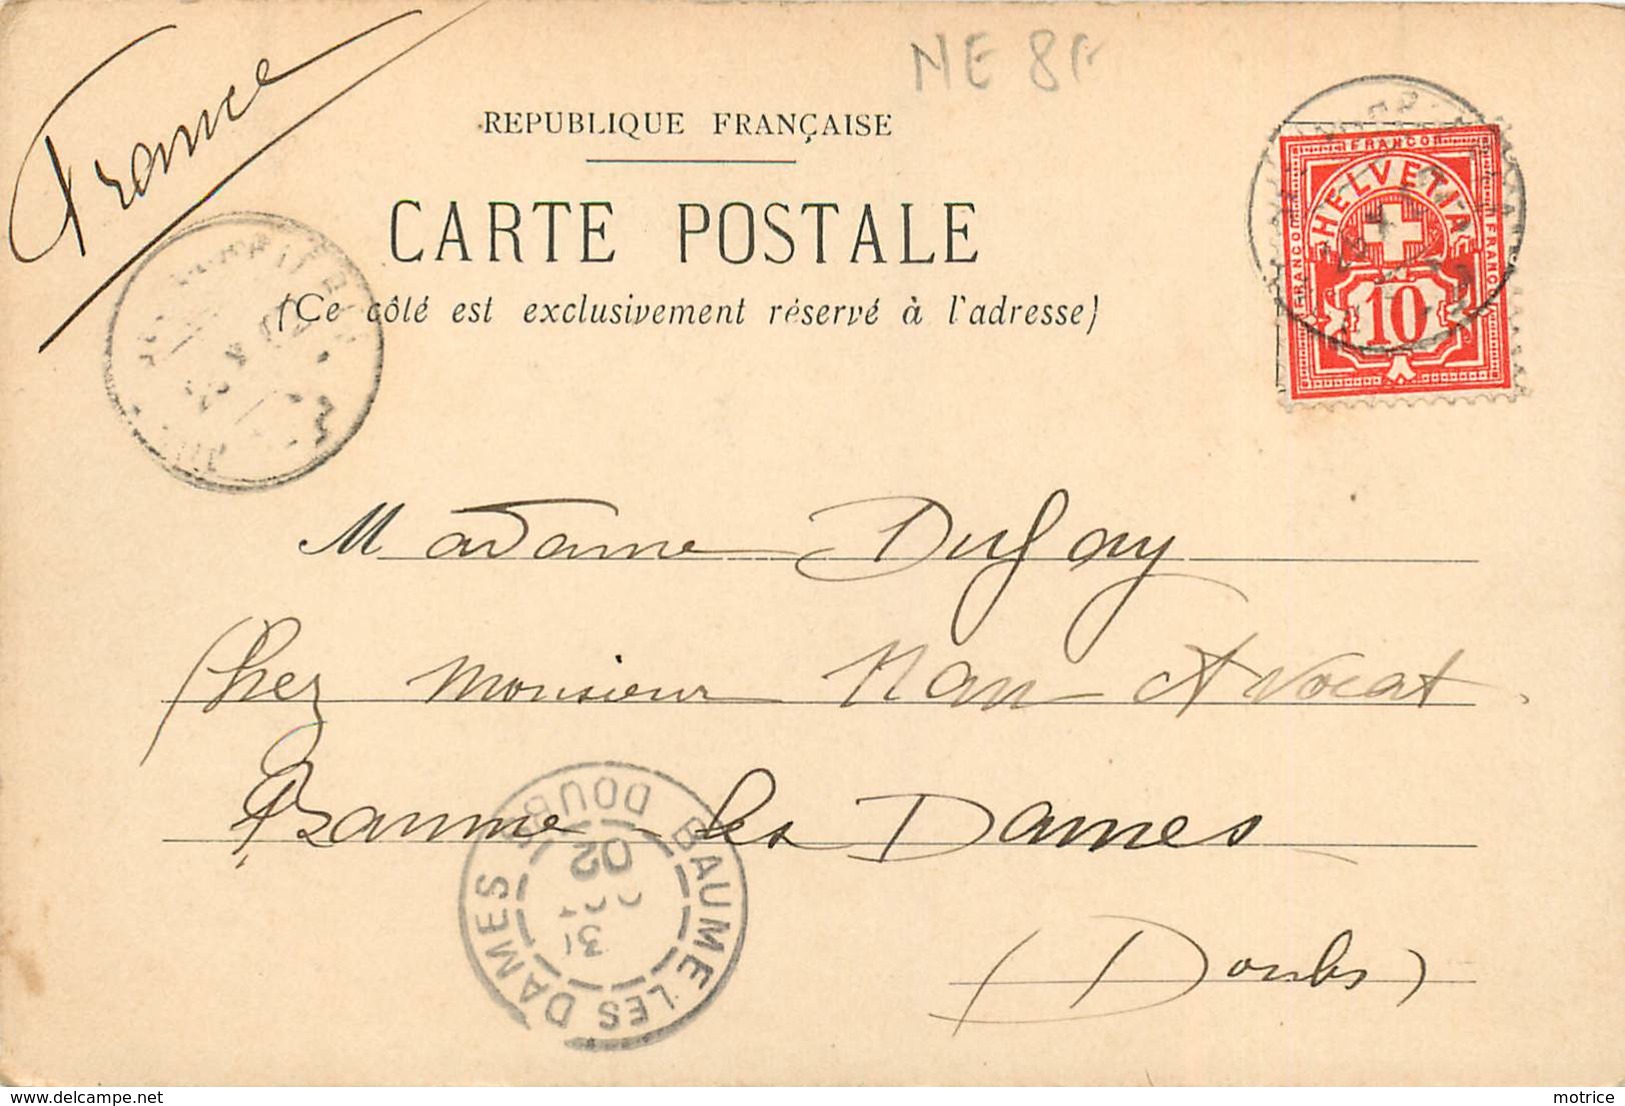 France
NE 8F
REPUBLIQUE FRANÇAISE
CARTE POSTALE
(Ce côté est exclusivement réservé à l'adresse)
FRANCO
HELVETIA
FRANCO
FRANCO
10
Madame Dufay
Chez Monsieur Nan Avocat
Baume-les Dames
(Doubs)
BAUME LES DAMES
DOUBS
31
02
www.delcampe.net
motrice